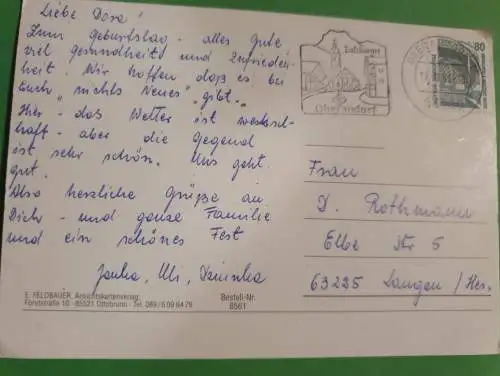 Liebe Dora!
Zum Geburtstag - alles Gute
viel gesundheit und Zufrieden-
heit. Wir hoffen daß es bei
Euch „nichts Neues" gibt.
Hier - das Wetter ist wechsel-
haft - aber die Gegend
ist sehr schön. Uns geht
gut.
Also herzliche Grüße an
Dich - und ganze Familie
und ein schönes Fest
Janka, Uli,
Oberaudorf
80
Frau
D. Rothmann
Elbe Str 5
63225 Langen / Hes.
E. FELDBAUER, Ansichtskartenverlag,
Forststraße 10 - 85521 Ottobrunn - Tel. 089/6 09 84 76
Bestell-Nr.
8561